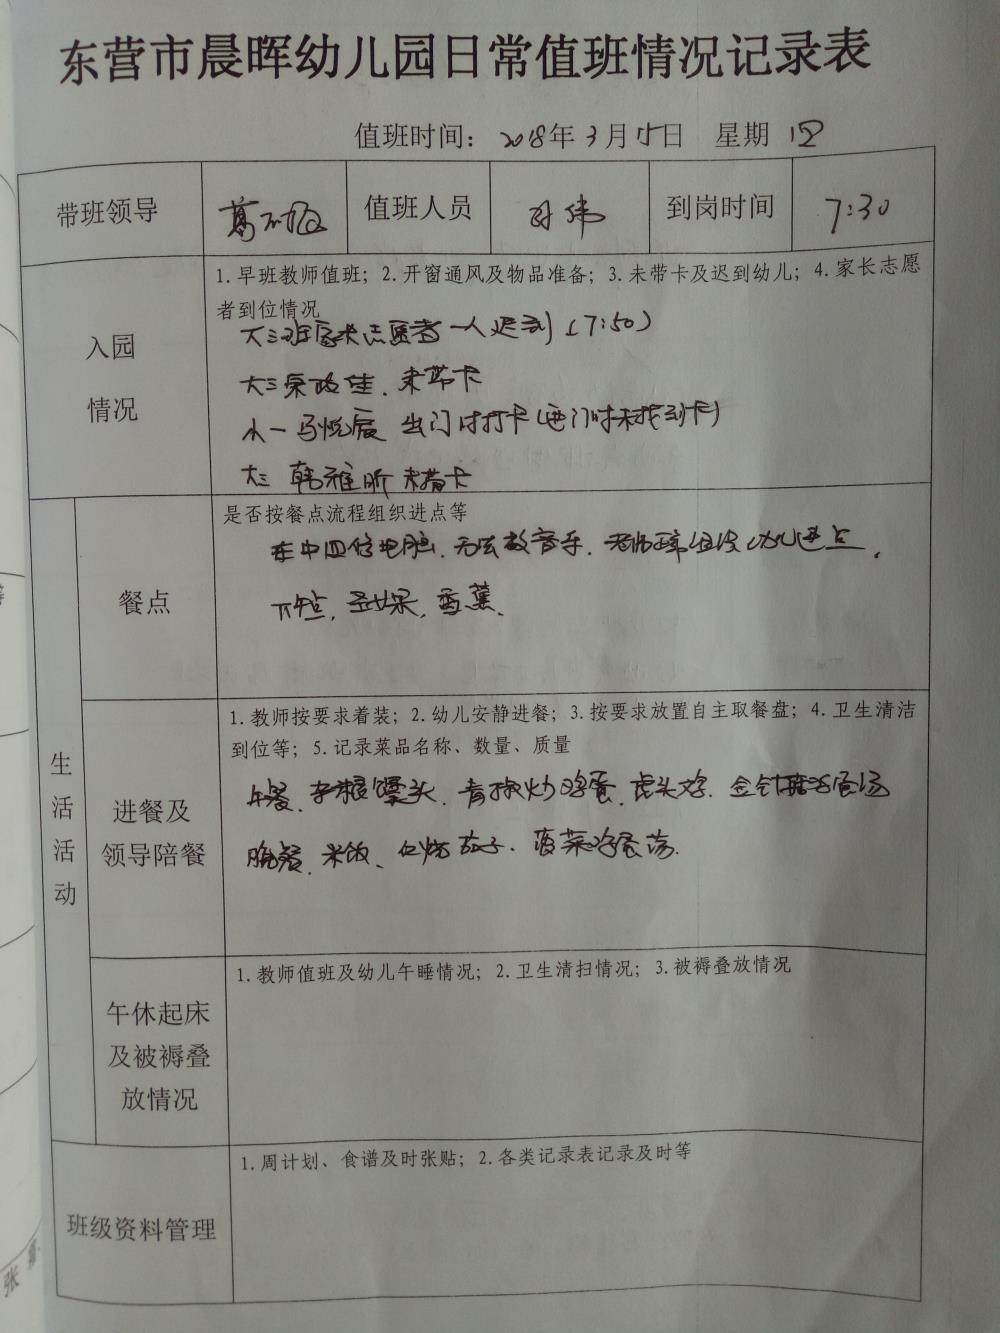 东营市晨晖幼儿园日常值班情况记录表
值班时间：2018年3月15日 星期 四
带班领导 葛 值班人员 时伟 到岗时间 7:30
入园
情况
1.早班教师值班；2.开窗通风及物品准备；3.未带卡及迟到幼儿；4.家长志愿
者到位情况
大三班家长志愿者一人迟到（7:50）
大三 佳.未带卡
小一马悦辰 出门时打卡(进门时未找到卡)
大三 韩雅昕 未带卡
生活活动
餐点
是否按餐点流程组织进点等
中四 电脑.无法放音乐.老师 组织幼儿进点.
下午点,圣女果,香蕉.
进餐及
领导陪餐
1.教师按要求着装；2.幼儿安静进餐；3.按要求放置自主取餐盘；4.卫生清洁
到位等；5.记录菜品名称、数量、质量
午餐. 馒头.青椒炒鸡蛋. 金针 蛋汤
晚餐.米饭、红烧茄子.菠菜鸡蛋汤.
午休起床
及被褥叠
放情况
1.教师值班及幼儿午睡情况；2.卫生清扫情况；3.被褥叠放情况
班级资料管理
1.周计划、食谱及时张贴；2.各类记录表记录及时等
张